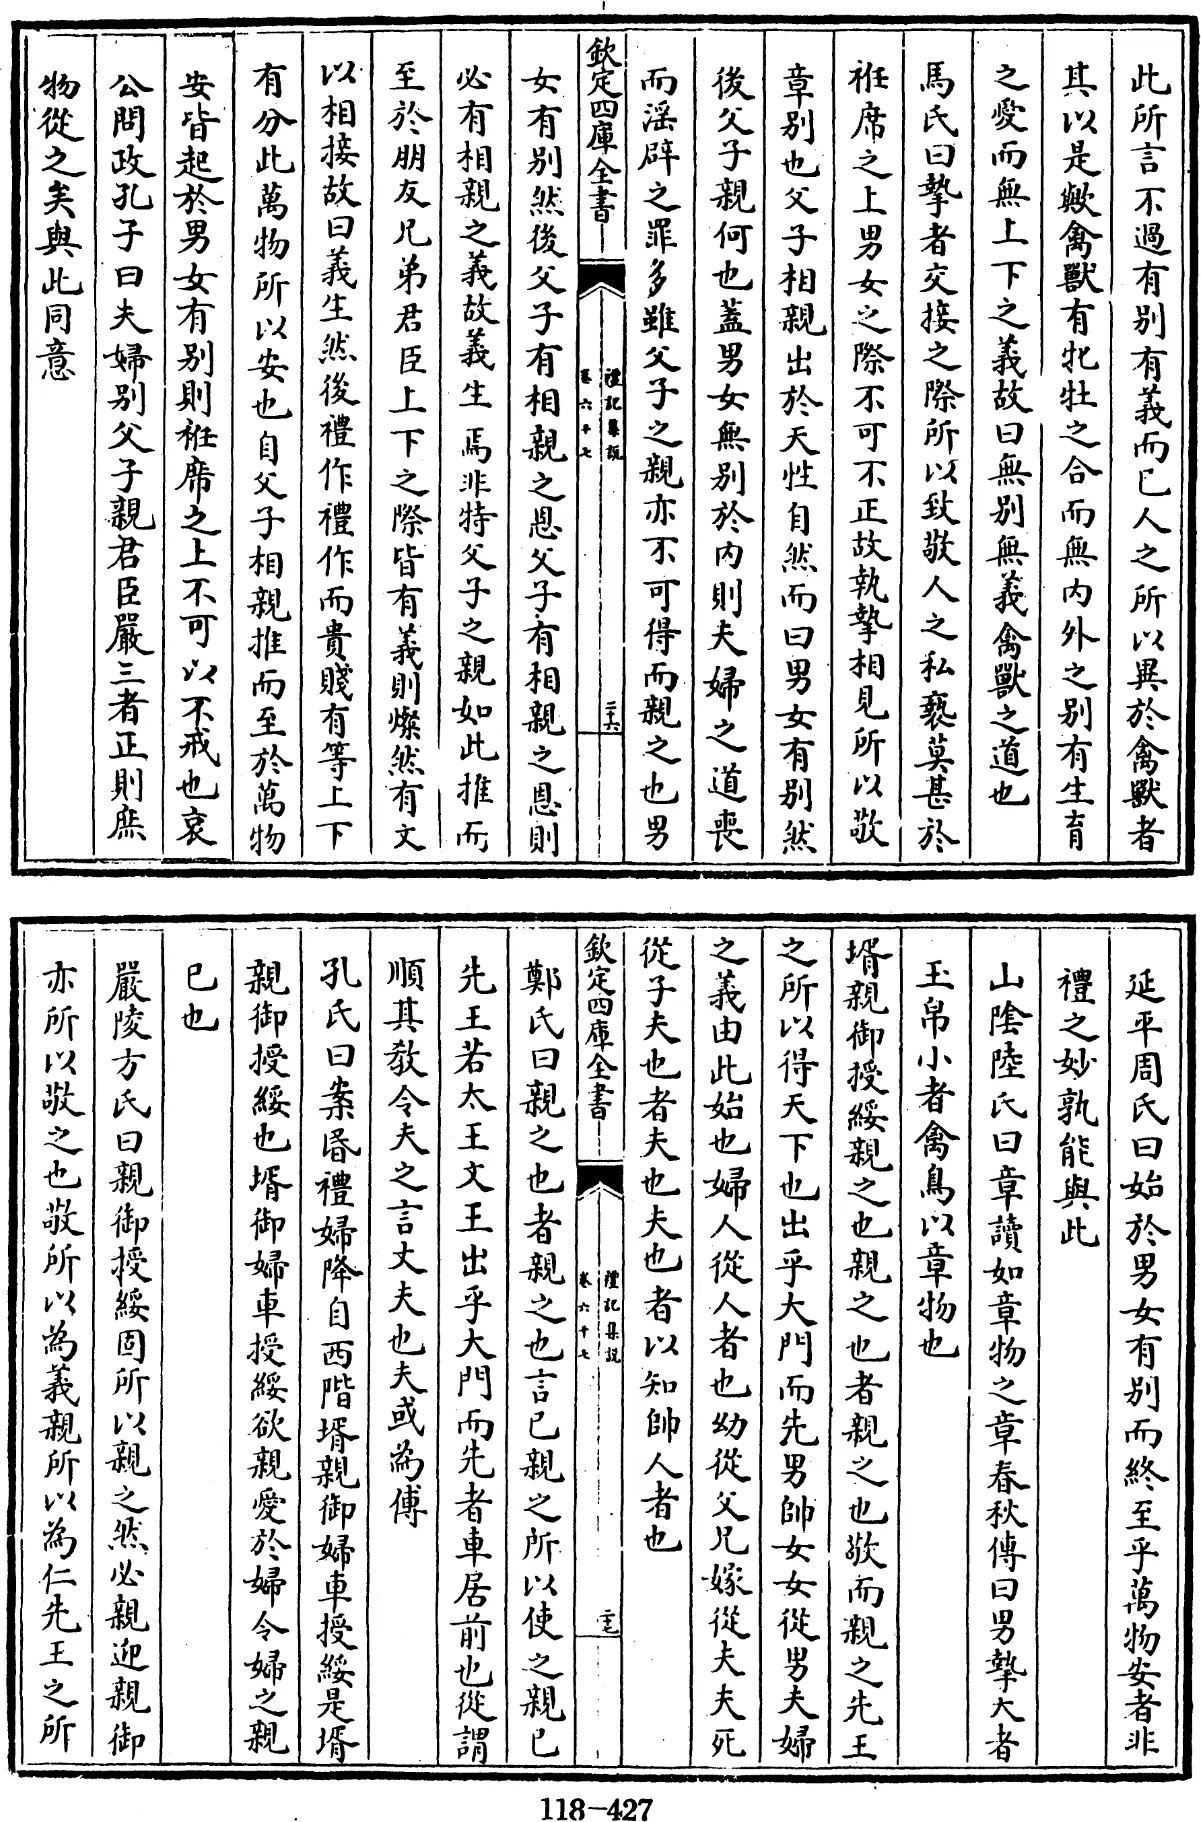 此所言不過有別有義而已人之所以異於禽獸者
其以是歟禽獸有牝牡之合而無内外之別有生育
之愛而無上下之義故曰無別無義禽獸之道也
馬氏曰摯者交接之際所以致敬人之私褻莫甚於
袵席之上男女之際不可不正故執摯相見所以敬
章別也父子相親出於天性自然而曰男女有別然
後父子親何也蓋男女無別於内則夫婦之道喪
而淫辟之罪多雖父子之親亦不可得而親之也男
欽定四庫全書
禮記集說
卷六十七
二十六
女有別然後父子有相親之恩父子有相親之恩則
必有相親之義故義生焉非特父子之親如此推而
至於朋友兄弟君臣上下之際皆有義則燦然有文
以相接故曰義生然後禮作禮作而貴賤有等上下
有分此萬物所以安也自父子相親推而至於萬物
安皆起於男女有別則袵席之上不可以不戒也哀
公問政孔子曰夫婦別父子親君臣嚴三者正則庶
物從之矣與此同意
延平周氏曰始於男女有別而終至乎萬物安者非
禮之妙孰能與此
山陰陸氏曰章讀如章物之章春秋傳曰男摯大者
玉帛小者禽鳥以章物也
壻親御授綏親之也親之也者親之也敬而親之先王
之所以得天下也出乎大門而先男帥女女從男夫婦
之義由此始也婦人從人者也幼從父兄嫁從夫夫死
從子夫也者夫也夫也者以知帥人者也
欽定四庫全書
禮記集說
卷六十七
二十七
鄭氏曰親之也者親之也言已親之所以使之親已
先王若太王文王出乎大門而先者車居前也從謂
順其教令夫之言丈夫也夫或為傅
孔氏曰案昬禮婦降自西階壻親御婦車授綏是壻
親御授綏也壻御婦車授綏欲親愛於婦令婦之親
已也
嚴陵方氏曰親御授綏固所以親之然必親迎親御
亦所以敬之也敬所以為義親所以為仁先王之所
118-427